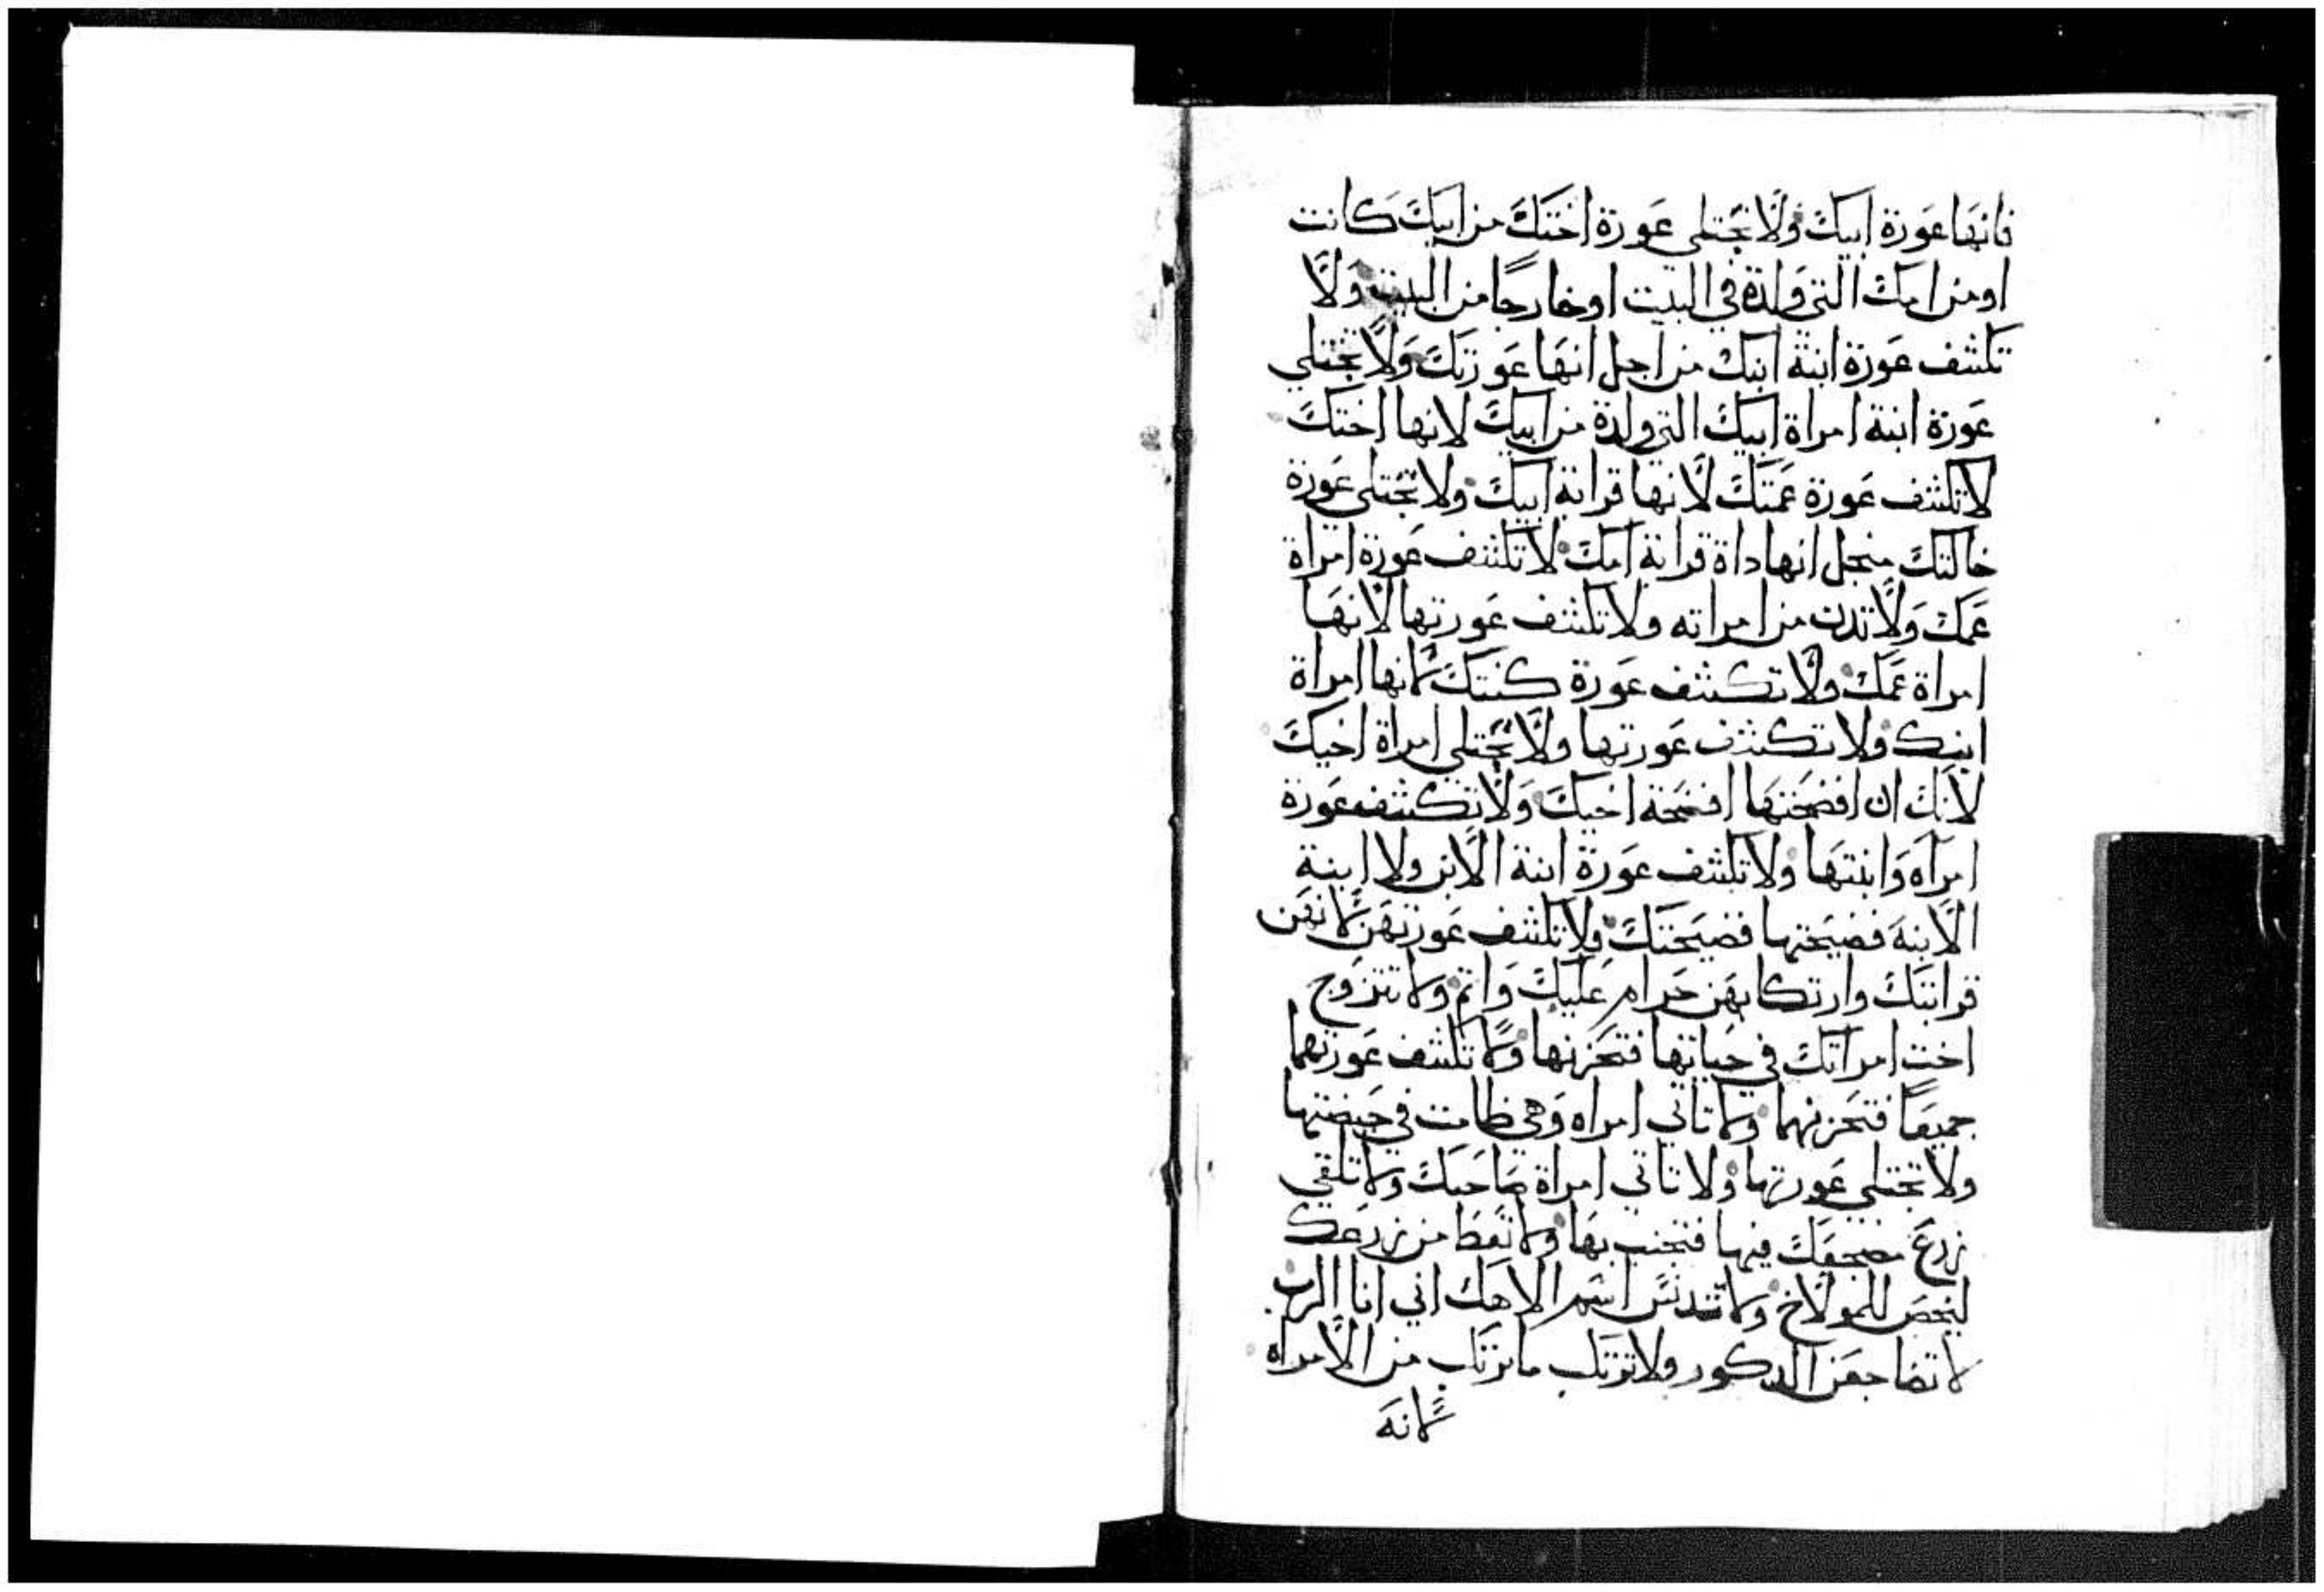 فانها عورة ابيك ولا تجتلي عورة اختك من ابيك كانت
او من امك التي ولدة في البيت او خارجا من البيت ولا
تكشف عورة ابنة ابنك من اجل انها عورتك ولا تجتلي
عورة ابنة امراة ابيك التي ولدة من ابيك لانها اختك
لا تكشف عورة عمتك لانها قرابة ابيك ولا تجتلي عورة
خالتك منجل انها داة قرابة امك لا تكشف عورة امراة
عمك ولا تدن من امراته ولا تكشف عورتها لانها
امراة عمك ولا تكشف عورة كنتك لانها امراة
ابنك ولا تكشف عورتها ولا تجتلي امراة اخيك
لانك ان افضحتها افضحة اخيك ولا تكشف عورة
امراه وابنتها ولا تكشف عورة ابنة الابن ولا ابنة
الابنه فضيحتها فضيحتك ولا تكشف عورتهن لانهن
قرابتك وارتكابهن حرام عليك واثم ولا تتزوج
اخت امراتك في حياتها فتحزنها ولا تكشف عورتهما
جميعا فتحزنهما ولا تاتي امراه وهي طامت في حيضتها
ولا تجتلي عورتها ولا تاتي امراة صاحبك ولا تلقي
زرع مضجعك فيها فتجنب بها ولا تعط من زرعك
للمولاخ ولا تندس اسم الاهك اني انا الرب
لا تضاجعن الدكور ولا ترتكب ما ترتكب من الامراه
لانه